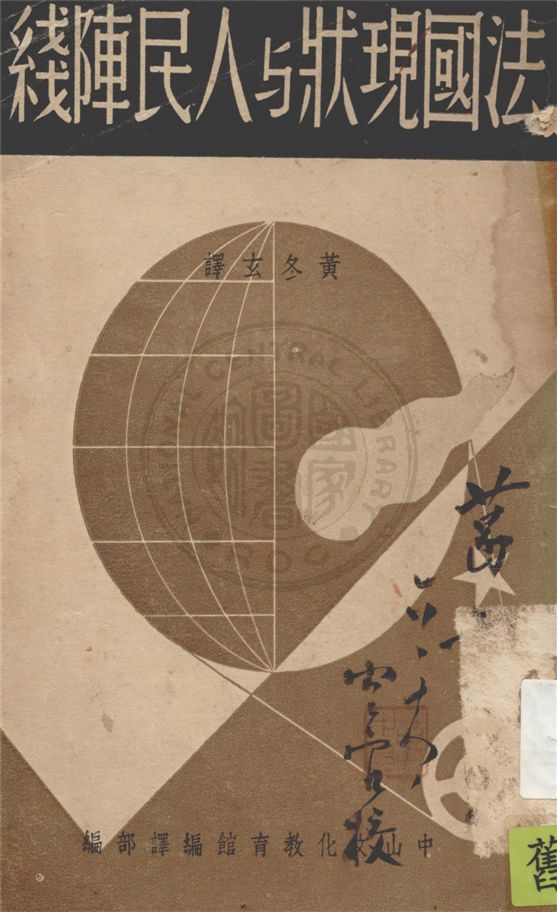 法國現狀与人民陣綫
黃冬玄譯
NATIONAL CENTRAL LIBRARY
國家圖書館
中山文化教育館編譯部編
舊